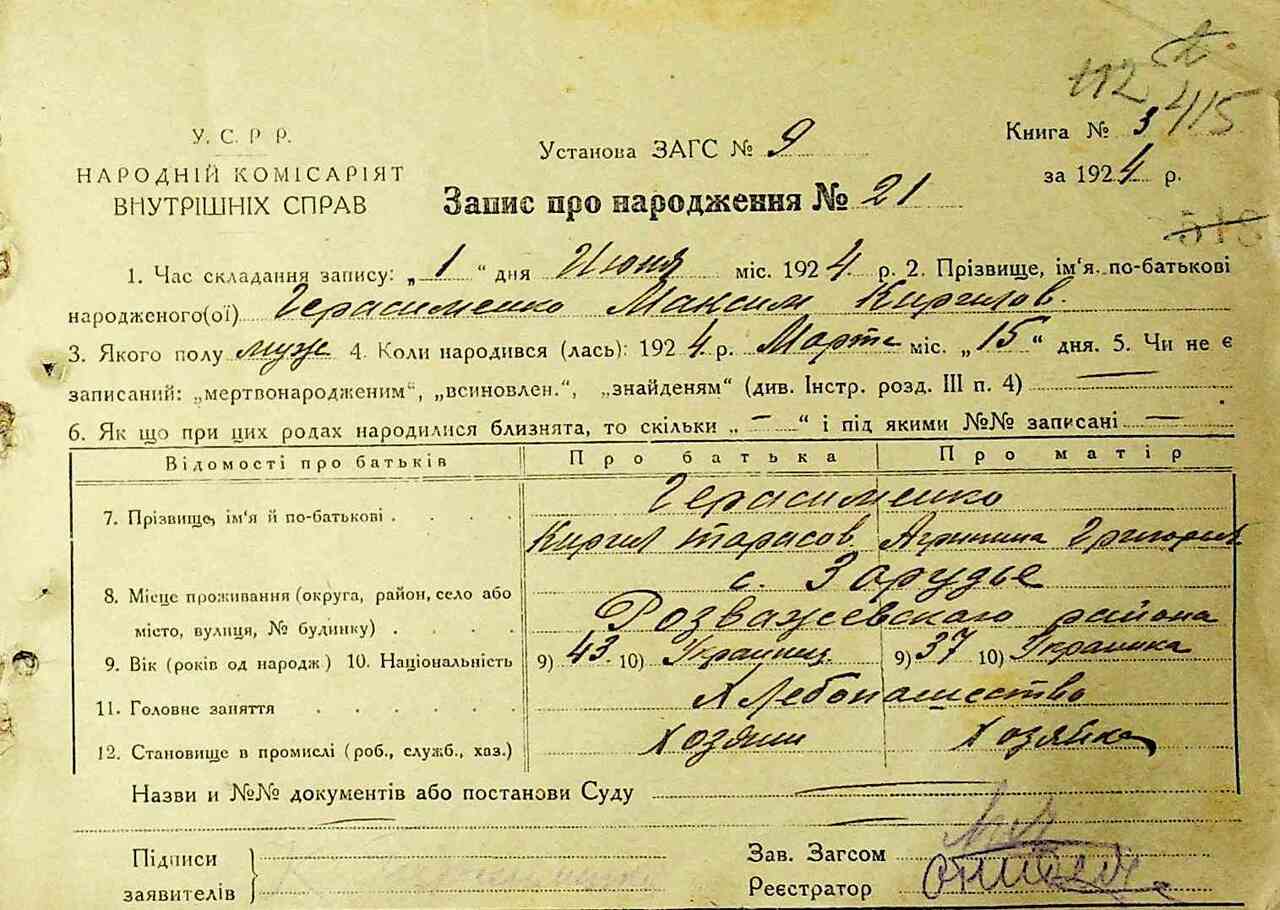 112 415
У. С. Р Р.
НАРОДНІЙ КОМІСАРІЯТ
ВНУТРІШНІХ СПРАВ
Установа ЗАГС № 9
Книга № 3
за 1924 р.
Запис про народження № 21
518
1. Час складання запису: „ 1 “ дня Июня міс. 1924 р. 2. Прізвище, ім'я по-батькові
народженого(ої) Герасименко Максим Кирилов.
3. Якого полу муж 4. Коли народився (лась): 1924 р. Марта міс. „ 15 “ дня. 5. Чи не є
записаний: „мертвонародженим“, „всиновлен.“, „знайденям“ (див. Інстр. розд. III п. 4) —
6. Як що при цих родах народилися близнята, то скільки „ – “ і під якими №№ записані —
Відомості про батьків Про батька Про матір
7. Прізвище, ім'я й по-батькові . . . . Герасименко
Кирил Тарасов Агрипина Григорьев.
8. Місце проживання (округа, район, село або с. Зарудье
місто, вулиця, № будинку) . . . . Розважевскаго района
9. Вік (років од народж) 10. Національність 9) 43 10) Украинец. 9) 37 10) Украинка
11. Головне заняття . . . . . . Хлебопашество
12. Становище в промислі (роб., служб., хаз.) Хозяин Хозяйка
Назви и №№ документів або постанови Суду —
Підписи
заявителів
Зав. Загсом
Реєстратор